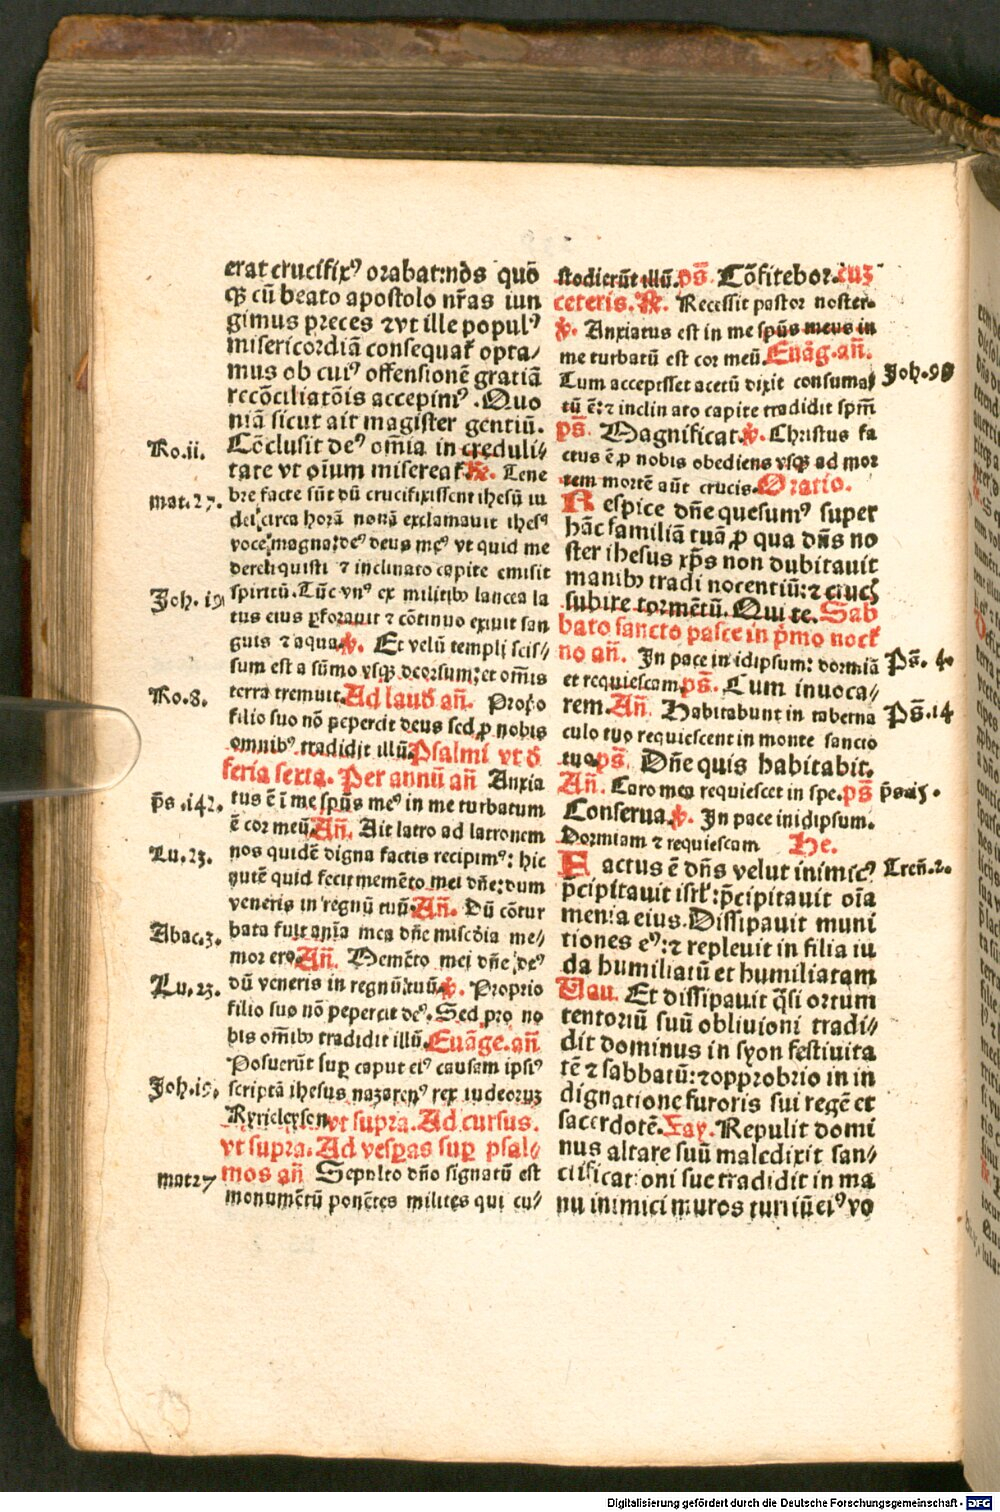 erat crucifixꝰ orabat:nos quō
qꝫ cū beato apostolo nr̄as iun
gimus preces ⁊vt ille populꝰ
misericordiā consequat᷑ opta/
mus ob cuiꝰ offensionē gratiā
recōciliatōis accepimꝰ. Quo
niā sicut ait magister gentiū.
Ro.ii.
Cōclusit deꝰ om̄ia in creduli/
tate vt oīum misereat᷑. ℟. Tene
mat.27.
bre facte sūt dū crucifixissent ihesū iu
dei:circa horā nonā exclamauit ihesꝰ
voce magna:deꝰ deus meꝰ vt quid me
dereliquisti ⁊ inclinato capite emisit
Joh.19
spiritū. Tūc vnꝰ ex militibꝰ lancea la
tus eius ꝑforauit ⁊ cōtinuo exiuit san
guis ⁊ aqua. ℣. Et velū templi scis//
sum est a sūmo vsqꝫ deorsum:et om̄is
Ro.8.
terra tremuit. Ad laud᷑ an̄. Propo
filio suo nō pepercit deus sed ꝓ nobis
omnibꝰ tradidit illū. Psalmi vt d᷑
feria sexta. Per annū an̄ Anxia
p̄s.142.
tus ē ī me spūs meꝰ in me turbatum
ē cor meū. An̄. Ait latro ad latronem
Lu.23.
nos quidē digna factis recipimꝰ: hic
autē quid fecit memēto mei dn̄e:dum
veneris in regnū tuū. An̄. Dū cōtur
Abac.3.
bata fuit anīa mea dn̄e miscd̄ia me//
mor ero. An̄. Memēto mei dn̄e deꝰ
Lu.23.
dū veneris in regnū tuū. ℣. Proprio
filio suo nō pepercit deꝰ. Sed pro no
bis om̄ibꝰ tradidit illū. Euāge.an̄
Posuerūt suꝑ caput eiꝰ causam ipsiꝰ
Joh.19.
scriptā ihesus nazarenꝰ rex iudeorꝫ
Kyrieleyson vt supra. Ad cursus.
vt supra. Ad vesꝑas suꝑ psal/
mat27
mos an̄ Sepulto dn̄o signatū est
monumētū ponētes milites qui cu//
stodierūt illū. ps̄. Cōfitebor. cuꝫ
ceteris. ℟. Recessit pastor noster.
℣. Anxiatus est in me spūs meus in
me turbatū est cor meū. Euāg.an̄.
Joh.98
Cum accepisset acetū dixit consuma/
tū ē:⁊ inclinato capite tradidit spm̄
ps̄. Magnificat. ℣. Christus fa
ctus ē ꝓ nobis obediens vsqꝫ ad mor
tem mortē aūt crucis. Oratio.
Respice dn̄e quesumꝰ super
hāc familiā tuā ꝓ qua dn̄s no
ster ihesus xp̄s non dubitauit
manibꝰ tradi nocentiū:⁊ crucꝭ
subire tormētū. Qui te. Sab
bato sancto pasce in p̄mo noct᷑
no an̄. In pace in idipsum: dormiā
Ps̄. 4.
et requiescam ps̄. Cum inuoca//
rem. An̄ Habitabunt in taberna
Ps̄.14
culo tuo requiescent in monte sancto
tuo. ps̄. Dn̄e quis habitabit.
An̄. Caro mea requiescet in spe. ps̄
ps̄.15.
Conserua. ℣. In pace in idipsum.
Dormiam ⁊ requiescam He.
Factus ē dn̄s velut inimicꝰ
Tren̄.2.
p̄cipitauit isrl̄:p̄cipitauit oīa
menia eius. Dissipauit muni
tiones eꝰ:⁊ repleuit in filia iu
da humiliatū et humiliatam
Vau. Et dissipauit q̄si ortum
tentoriū suū obliuioni tradi//
dit dominus in syon festiuita
tē ⁊ sabbatū:⁊opprobrio in in
dignatione furoris sui regē et
sacerdotē. Zay. Repulit domi
nus altare suū maledixit san/
ctificationi sue tradidit in ma
nu inimici muros turriū eiꝰ vo
Digitalisierung gefördert durch die Deutsche Forschungsgemeinschaft - DFG